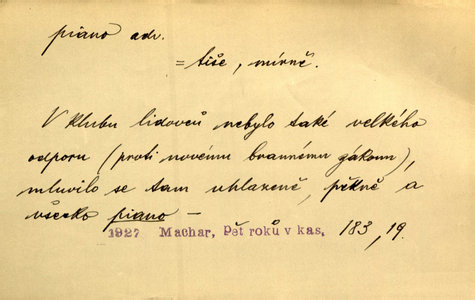 piano adv.
= tiše, mírně.
V klubu lidovců nebylo také velkého
odporu (proti novému brannému zákonu),
mluvilo se tam uhlazeně, pěkně a
všecko piano —
1927 Machar, Pět roků v kas. 183, 19.